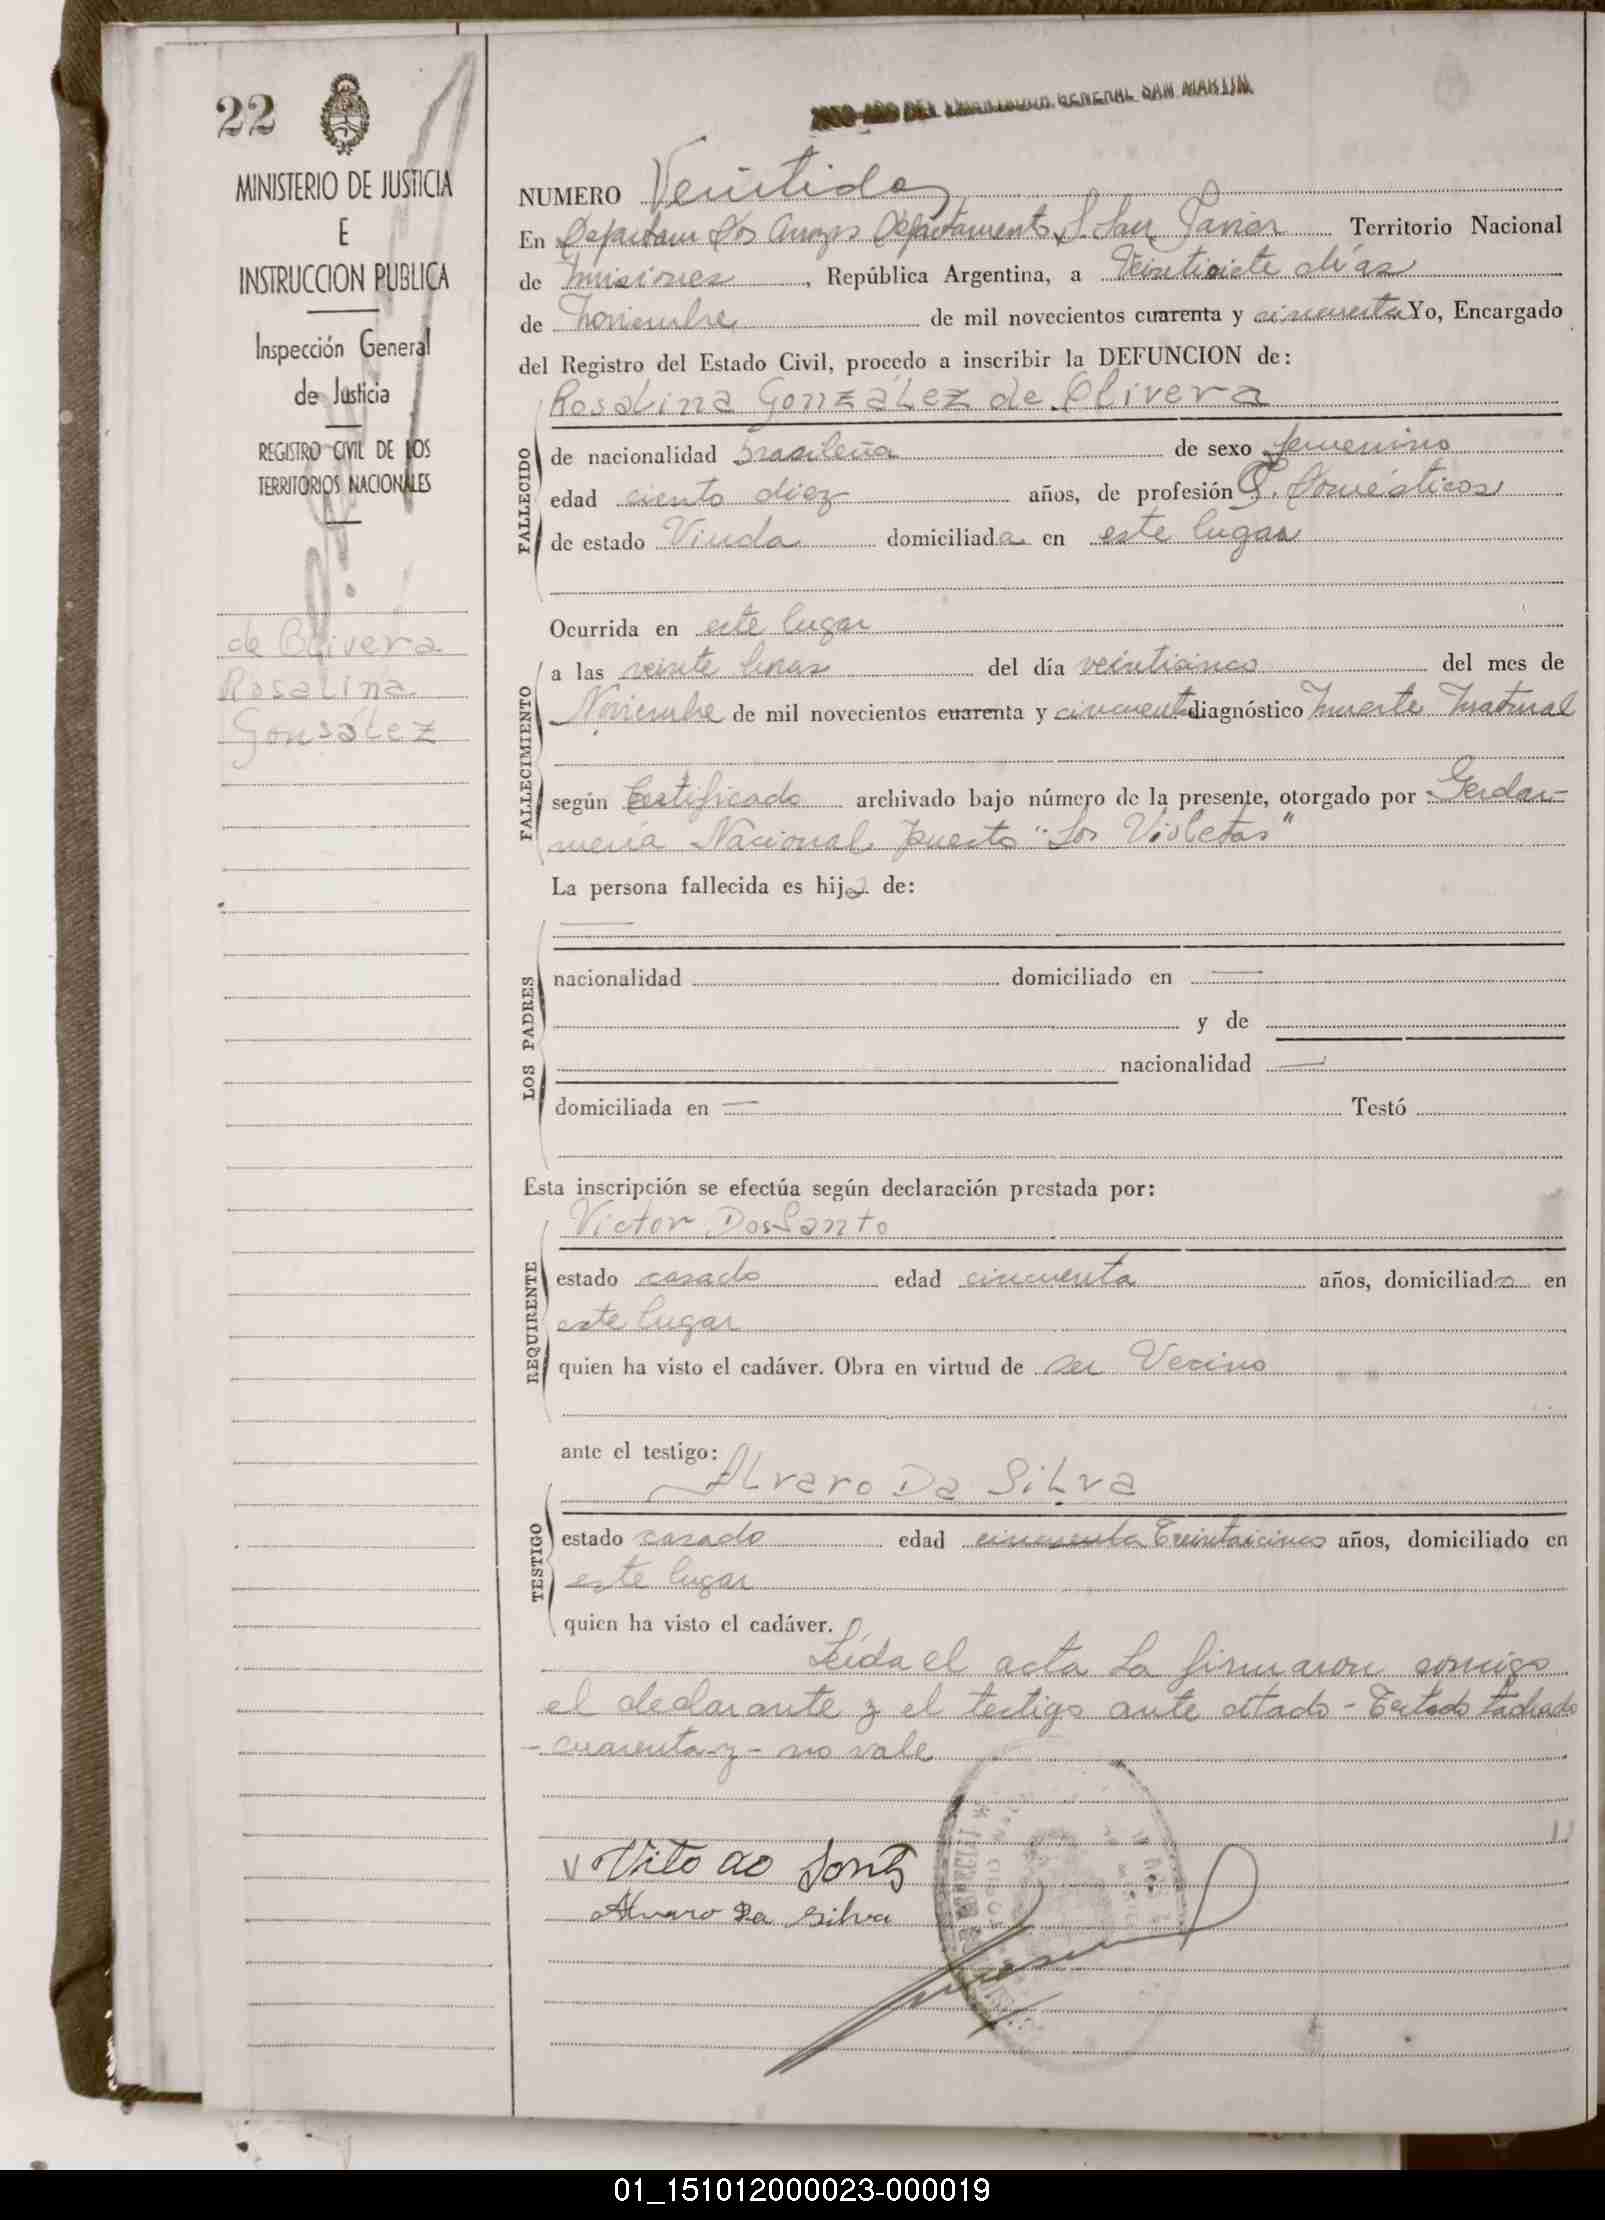 22
MINISTERIO DE JUSTICIA
E
INSTRUCCION PUBLICA
Inspección General
de Justicia
REGISTRO CIVIL DE LOS
TERRITORIOS NACIONALES
de Olivera
Rosalina
Gonsález
DEL LIBERTADOR GENERAL SAN MARTIN
NUMERO Veintidos
En Dos Arroyos Departamento San Javier Territorio Nacional
de Misiones, República Argentina, a Veintisiete días
de Noviembre de mil novecientos cuarenta y cincuenta Yo, Encargado
del Registro del Estado Civil, procedo a inscribir la DEFUNCION de:
Rosalina González de Olivera
FALLECIDO
de nacionalidad Brasileña de sexo femenino
edad ciento diez años, de profesión Q. Domésticos
de estado Viuda domiciliada en este lugar
Ocurrida en este lugar
FALLECIMIENTO
a las veinte horas del día veinticinco del mes de
Noviembre de mil novecientos cuarenta y cincuenta diagnóstico Muerte Natural
según Certificado archivado bajo número de la presente, otorgado por Gendar-
mería Nacional puesto "Los Violetas"
La persona fallecida es hija de:
LOS PADRES
nacionalidad domiciliado en
y de
nacionalidad
domiciliada en Testó
Esta inscripción se efectúa según declaración prestada por:
Victor DosSanto
REQUIRENTE
estado casado edad cincuenta años, domiciliado en
este lugar
quien ha visto el cadáver. Obra en virtud de ser Vecino
ante el testigo:
Alvaro Da Silva
TESTIGO
estado casado edad cincuenta Treintaicinco años, domiciliado en
este lugar
quien ha visto el cadáver.
Leida el acta La firmaron conmigo
el declarante y el testigo ante citado - Testado tachado
- cuarenta y - no vale
Vito do
Alvaro Da Silva
01_151012000023-000019